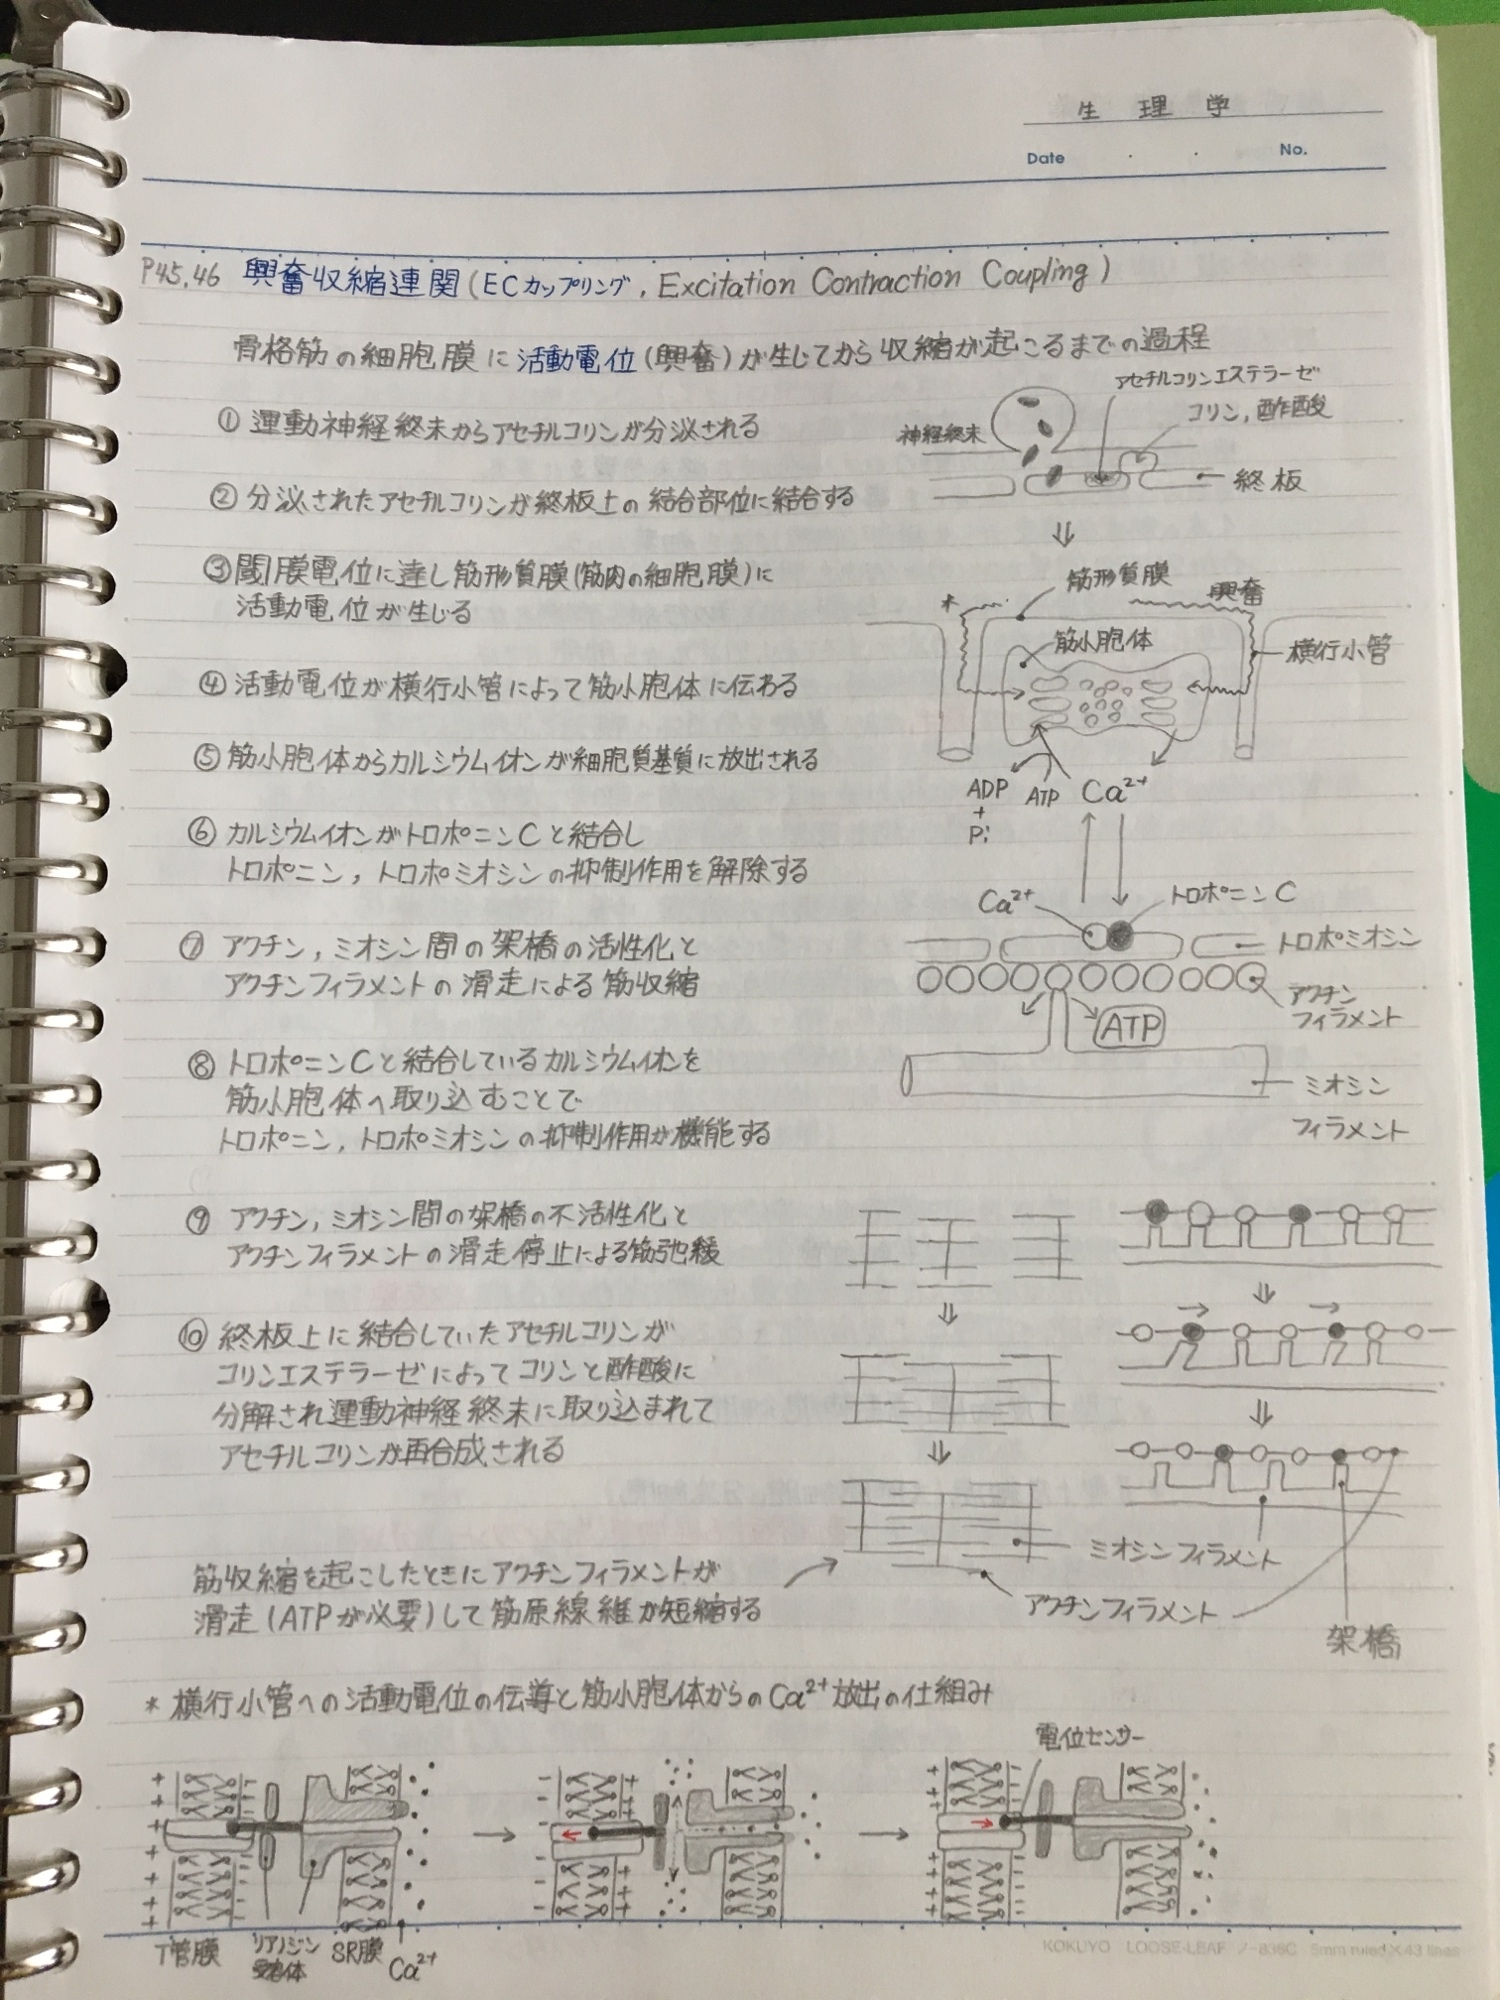 生理学
Date . . No.
P45,46 興奮収縮連関(ECカップリング, Excitation Contraction Coupling)
骨格筋の細胞膜に活動電位(興奮)が生じてから収縮が起こるまでの過程
①運動神経終末からアセチルコリンが分泌される
②分泌されたアセチルコリンが終板上の結合部位に結合する
③閾膜電位に達し筋形質膜(筋肉の細胞膜)に
活動電位が生じる
④活動電位が横行小管によって筋小胞体に伝わる
⑤筋小胞体からカルシウムイオンが細胞質基質に放出される
⑥カルシウムイオンがトロポニンCと結合し
トロポニン,トロポミオシンの抑制作用を解除する
⑦アクチン,ミオシン間の架橋の活性化と
アクチンフィラメントの滑走による筋収縮
⑧トロポニンCと結合しているカルシウムイオンを
筋小胞体へ取り込むことで
トロポニン,トロポミオシンの抑制作用が機能する
⑨アクチン,ミオシン間の架橋の不活性化と
アクチンフィラメントの滑走停止による筋弛緩
⑩終板上に結合していたアセチルコリンが
コリンエステラーゼによってコリンと酢酸に
分解され運動神経終末に取り込まれて
アセチルコリンが再合成される
筋収縮を起こしたときにアクチンフィラメントが
滑走(ATPが必要)して筋原線維が短縮する
アセチルコリンエステラーゼ
コリン,酢酸
神経終末
終板
⇓
筋形質膜
興奮
*
筋小胞体
横行小管
ADP
+
Pi
ATP
Ca²⁺
Ca²⁺
トロポニンC
トロポミオシン
アクチン
フィラメント
ATP
ミオシン
フィラメント
ミオシンフィラメント
アクチンフィラメント
架橋
*横行小管への活動電位の伝導と筋小胞体からのCa²⁺放出の仕組み
電位センサー
T管膜
リアノジン
受容体
SR膜
Ca²⁺
KOKUYO LOOSE-LEAF ノ-836C 5mm ruled×43 lines